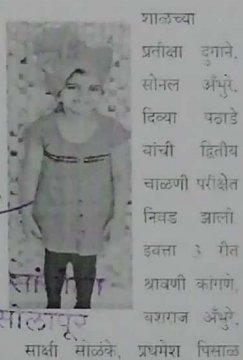 शाळच्या
प्रतीक्षा दुगाने,
सोनल अँभुरे,
दिव्या पठाडे
यांची द्वितीय
चाळणी परीक्षेत
निवड झाली
इयत्ता ३ रीत
श्रावणी कांगणे,
यशराज अँभुरे,
सोलापूर
साक्षी सोळंके, प्रथमेश पिसाळ